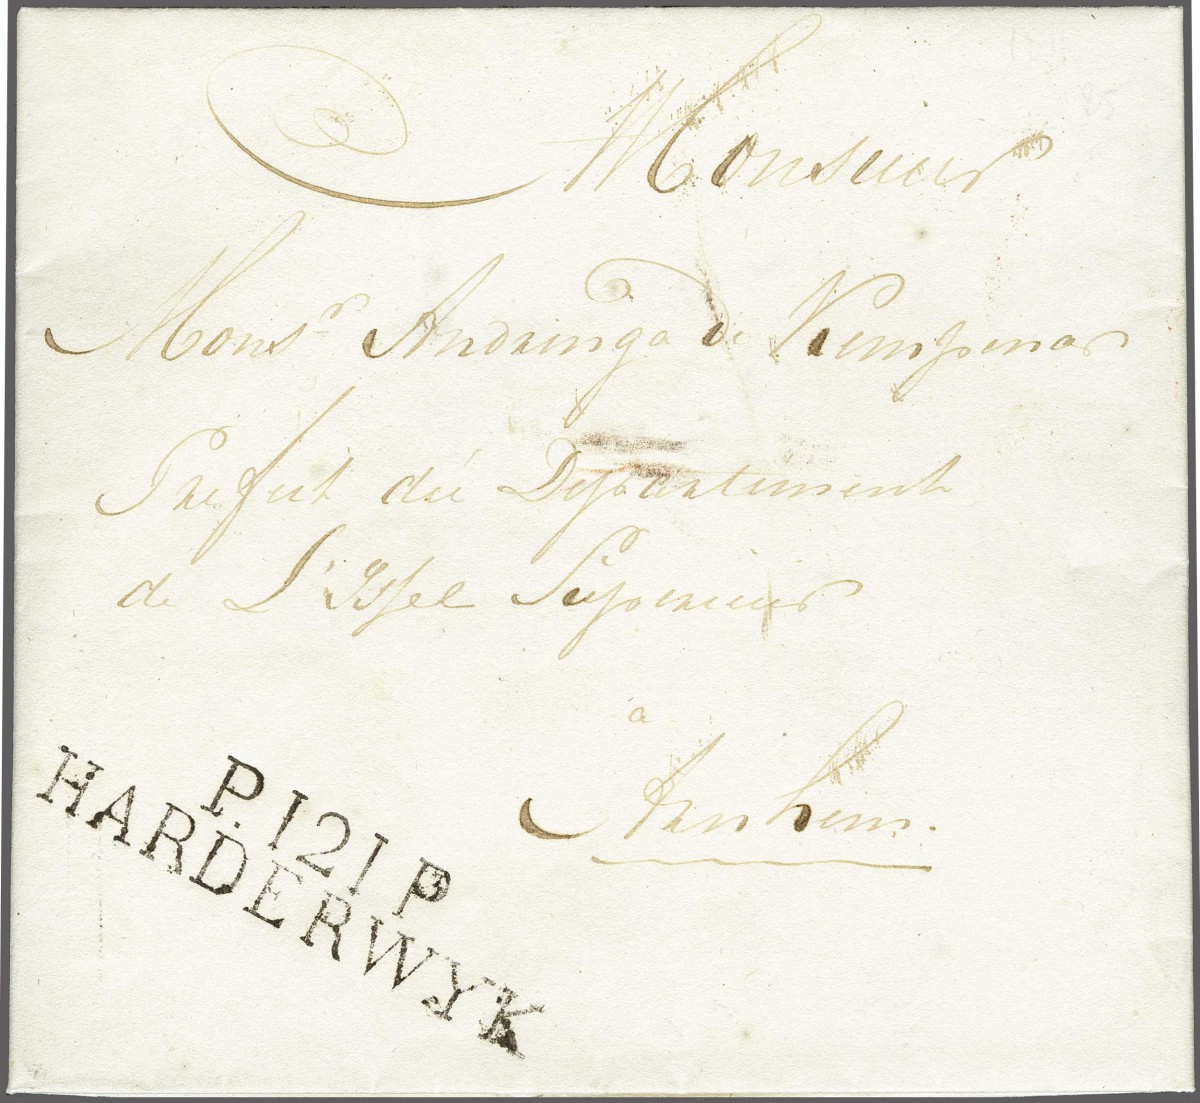 Monsieur
Mons.r Andringa de Kempenar
Prefect du Departement
de L'Issel Superieur
a
Arnhem.
P.121P
HARDERWYK